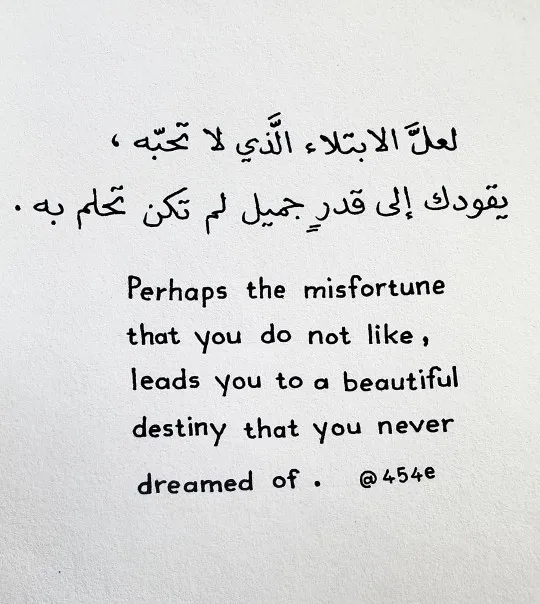 لعلَّ الابتلاء الَّذي لا تحبّه ،
يقودك إلى قدرٍ جميل لم تكن تحلم به .
Perhaps the misfortune
that you do not like,
leads you to a beautiful
destiny that you never
dreamed of . @454e